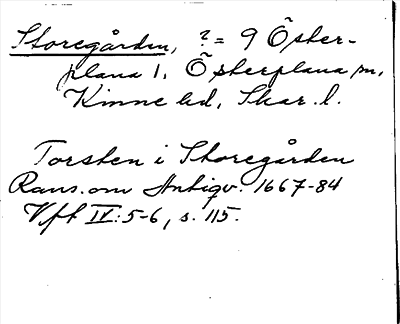 Storegården, ? = 9 Öster-
plana 1, Österplana sn,
Kinne hd, Skar. l.
Torsten i Storegården
Rans. om Antiqv. 1667-84
Vft IV: 5-6, s. 115.